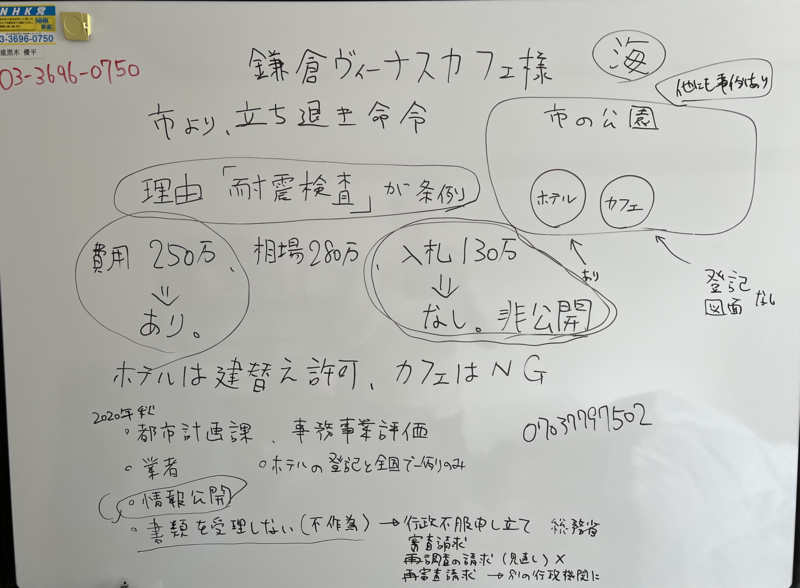 NHK党
NHK
3-3696-0750
黒木 優平
03-3696-0750
鎌倉ヴィーナスカフェ様
海
他にも事例あり
市より、立ち退き命令
市の公園
ホテル
カフェ
理由「耐震検査」が条例
費用 250万、相場280万、入札130万
⇓
あり。
⇓
なし。非公開
あり
登記
図面 なし
ホテルは建替え許可、カフェはNG
2020年秋
・都市計画課、事務事業評価
07037797502
・業者
○ホテルの登記と全国で一例のみ
○情報公開
・書類を受理しない(不作為)→行政不服申し立て 総務省
審査請求
再調査の請求(見直し)×
再審査請求 →別の行政機関に